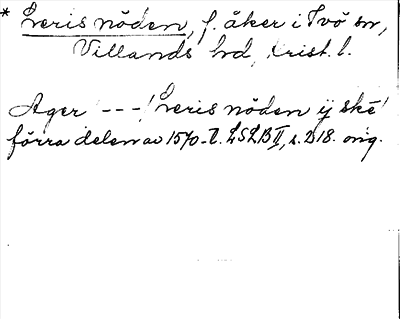 * Leris nöden, f. åker i Ivö sn,
Villands hd, Krist. l.
Ager ---! Leris nöden ij ské!
förra delen av 1570-t. LSLB II, s. 218. orig.